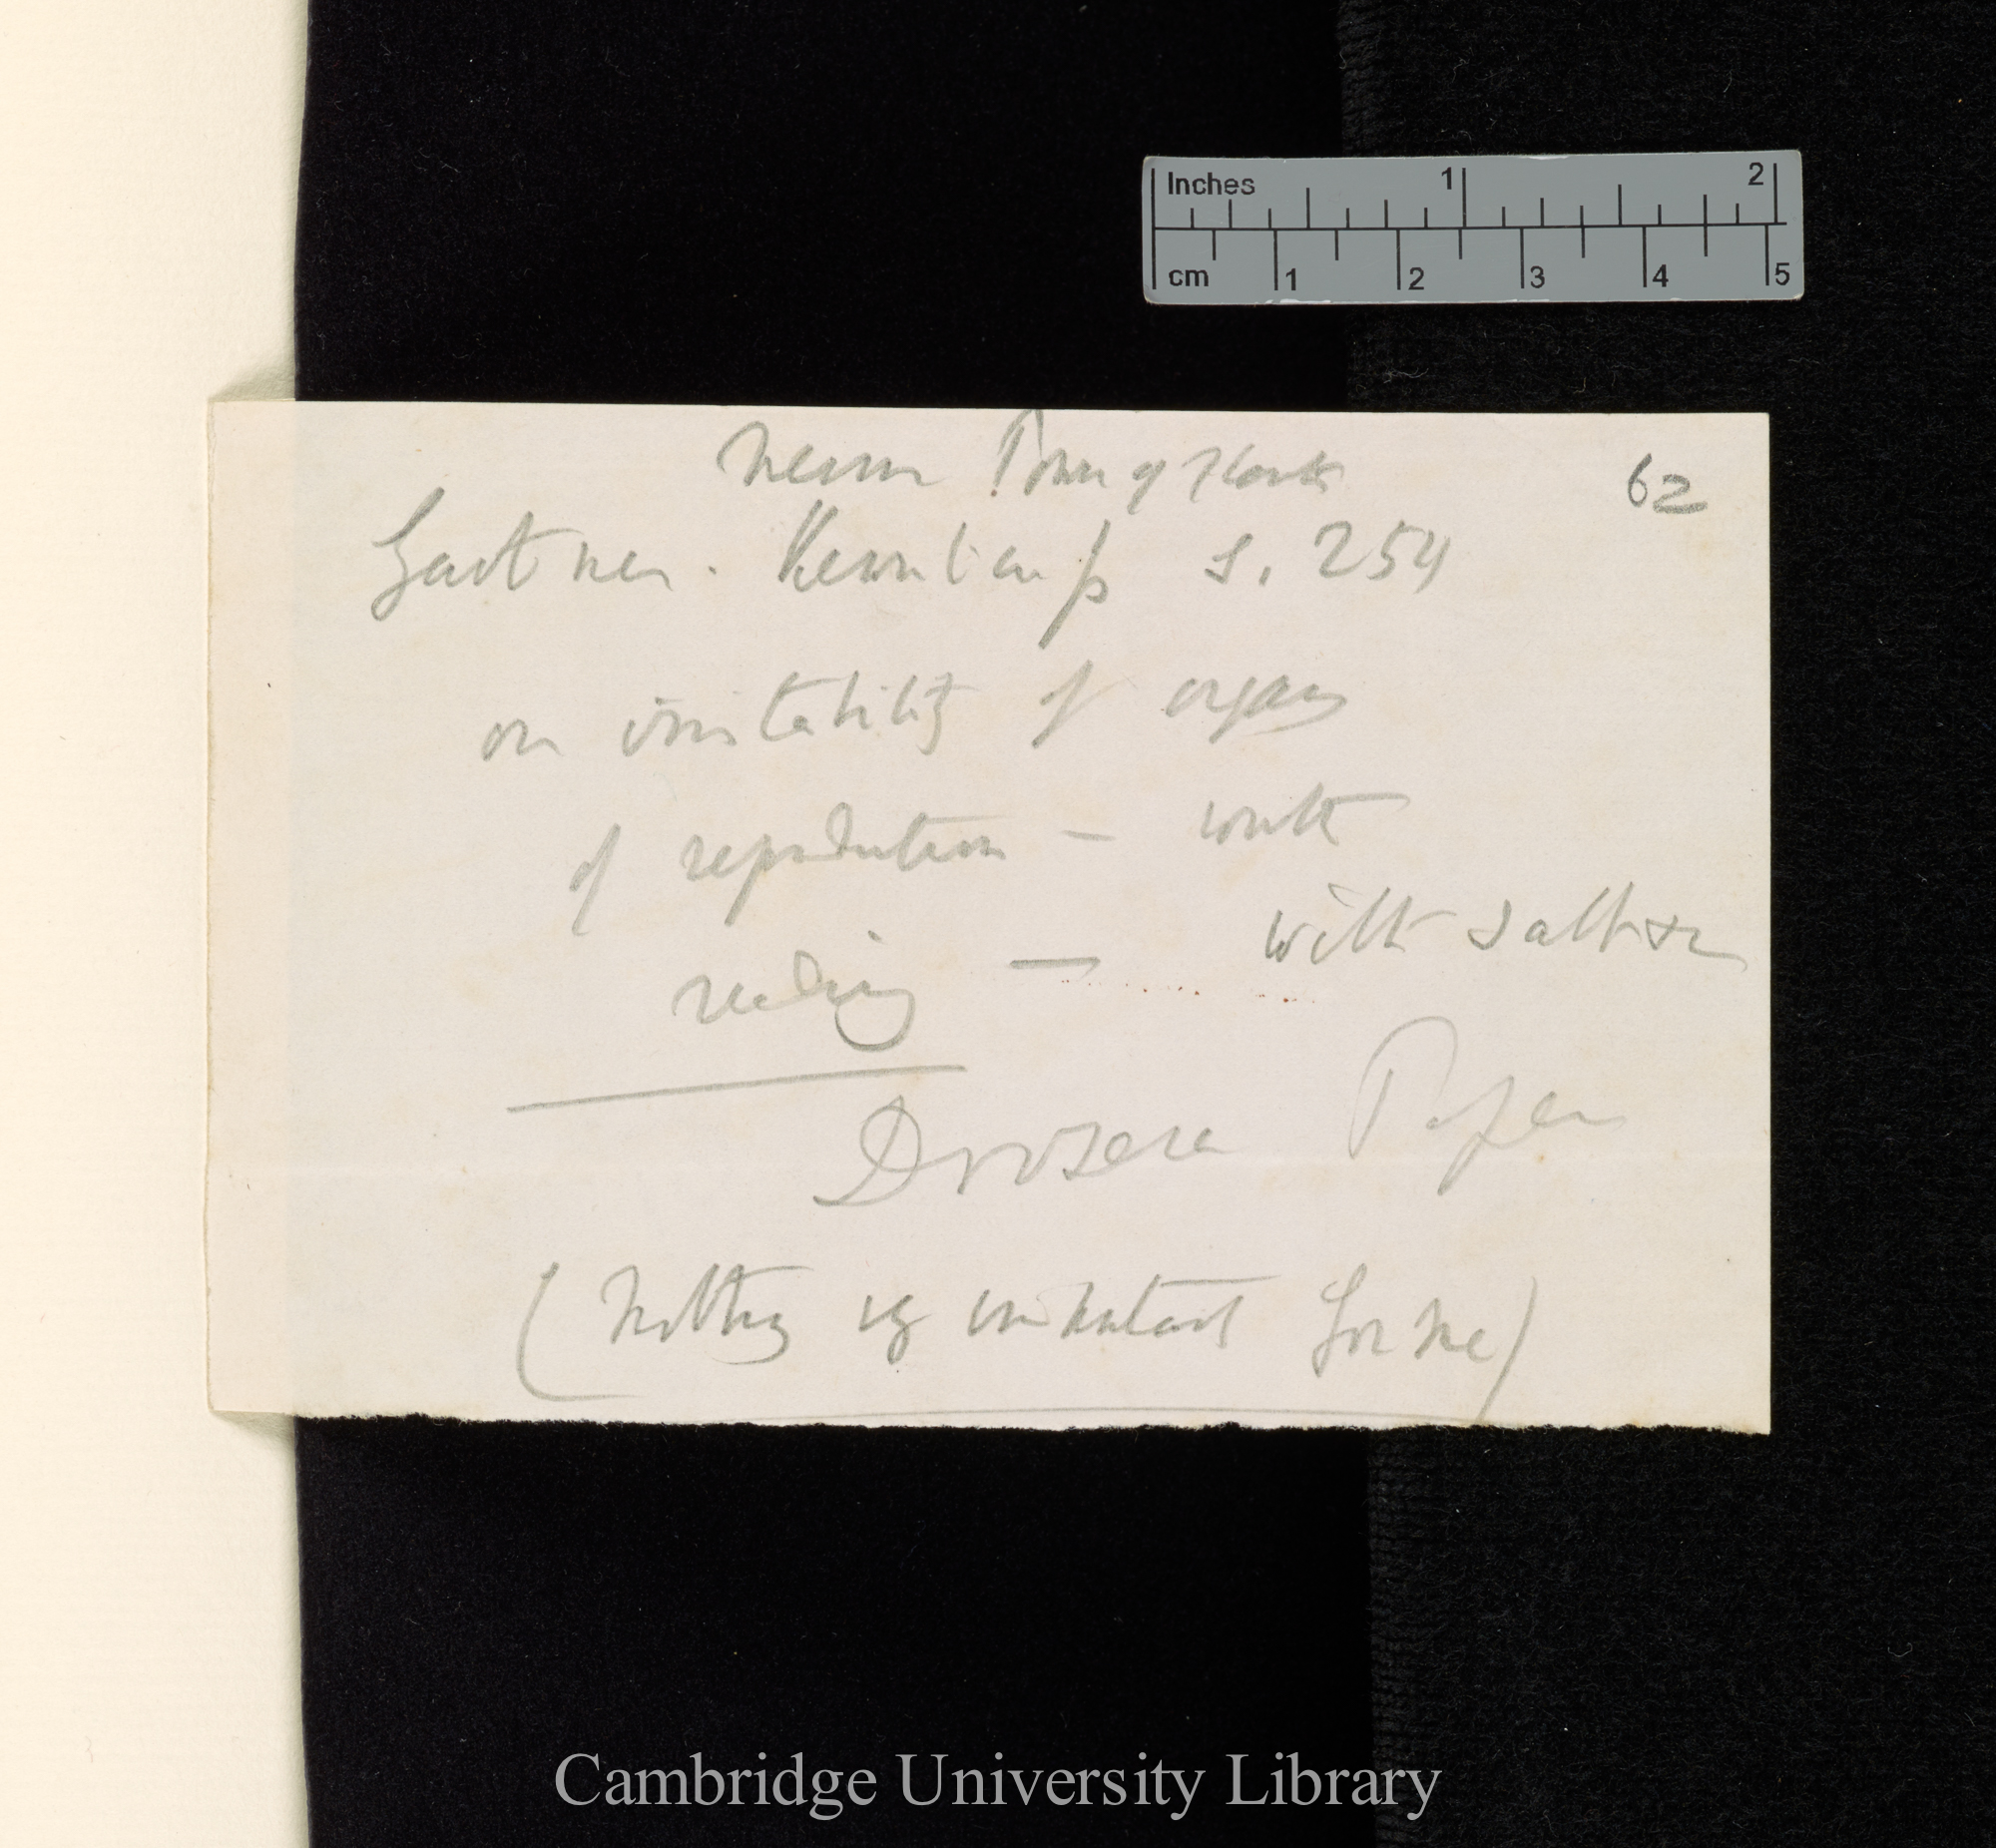 Inches 1 2
cm 1 2 3 4 5
62
Nervous Power of Plants
Gartner. Kenntniss S. 254
on irritability of organs
of reproduction — worth
reading — with Salts &c
Drosera Paper
(Nothing is important for me)
Cambridge University Library